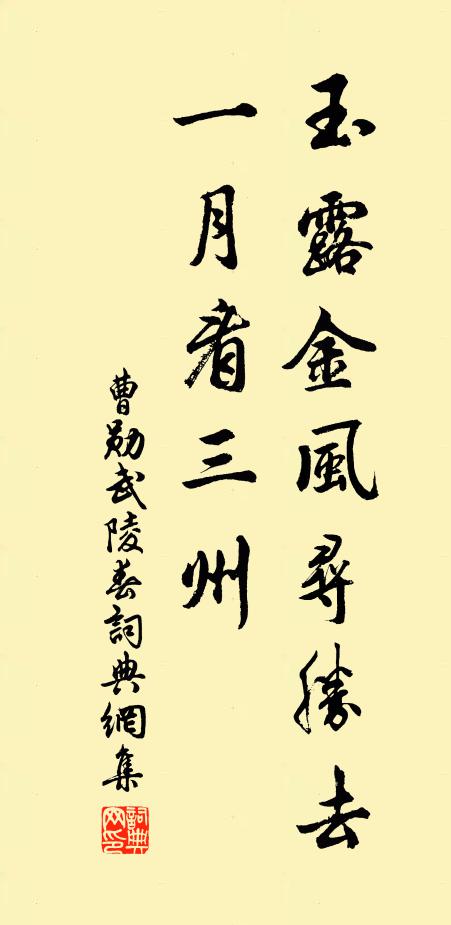 玉露金風尋勝去
一月看三州
曹勛武陵春詞典網集
詞典网印